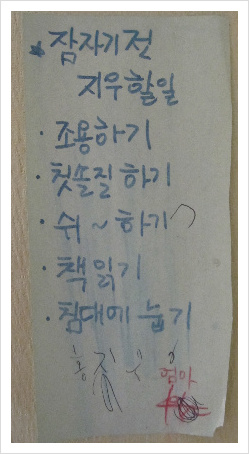 * 잠자기전
지우할일
· 조용하기
· 칫솔질 하기
· 쉬 ~ 하기
· 책 읽기
· 침대에 눕기
엄마